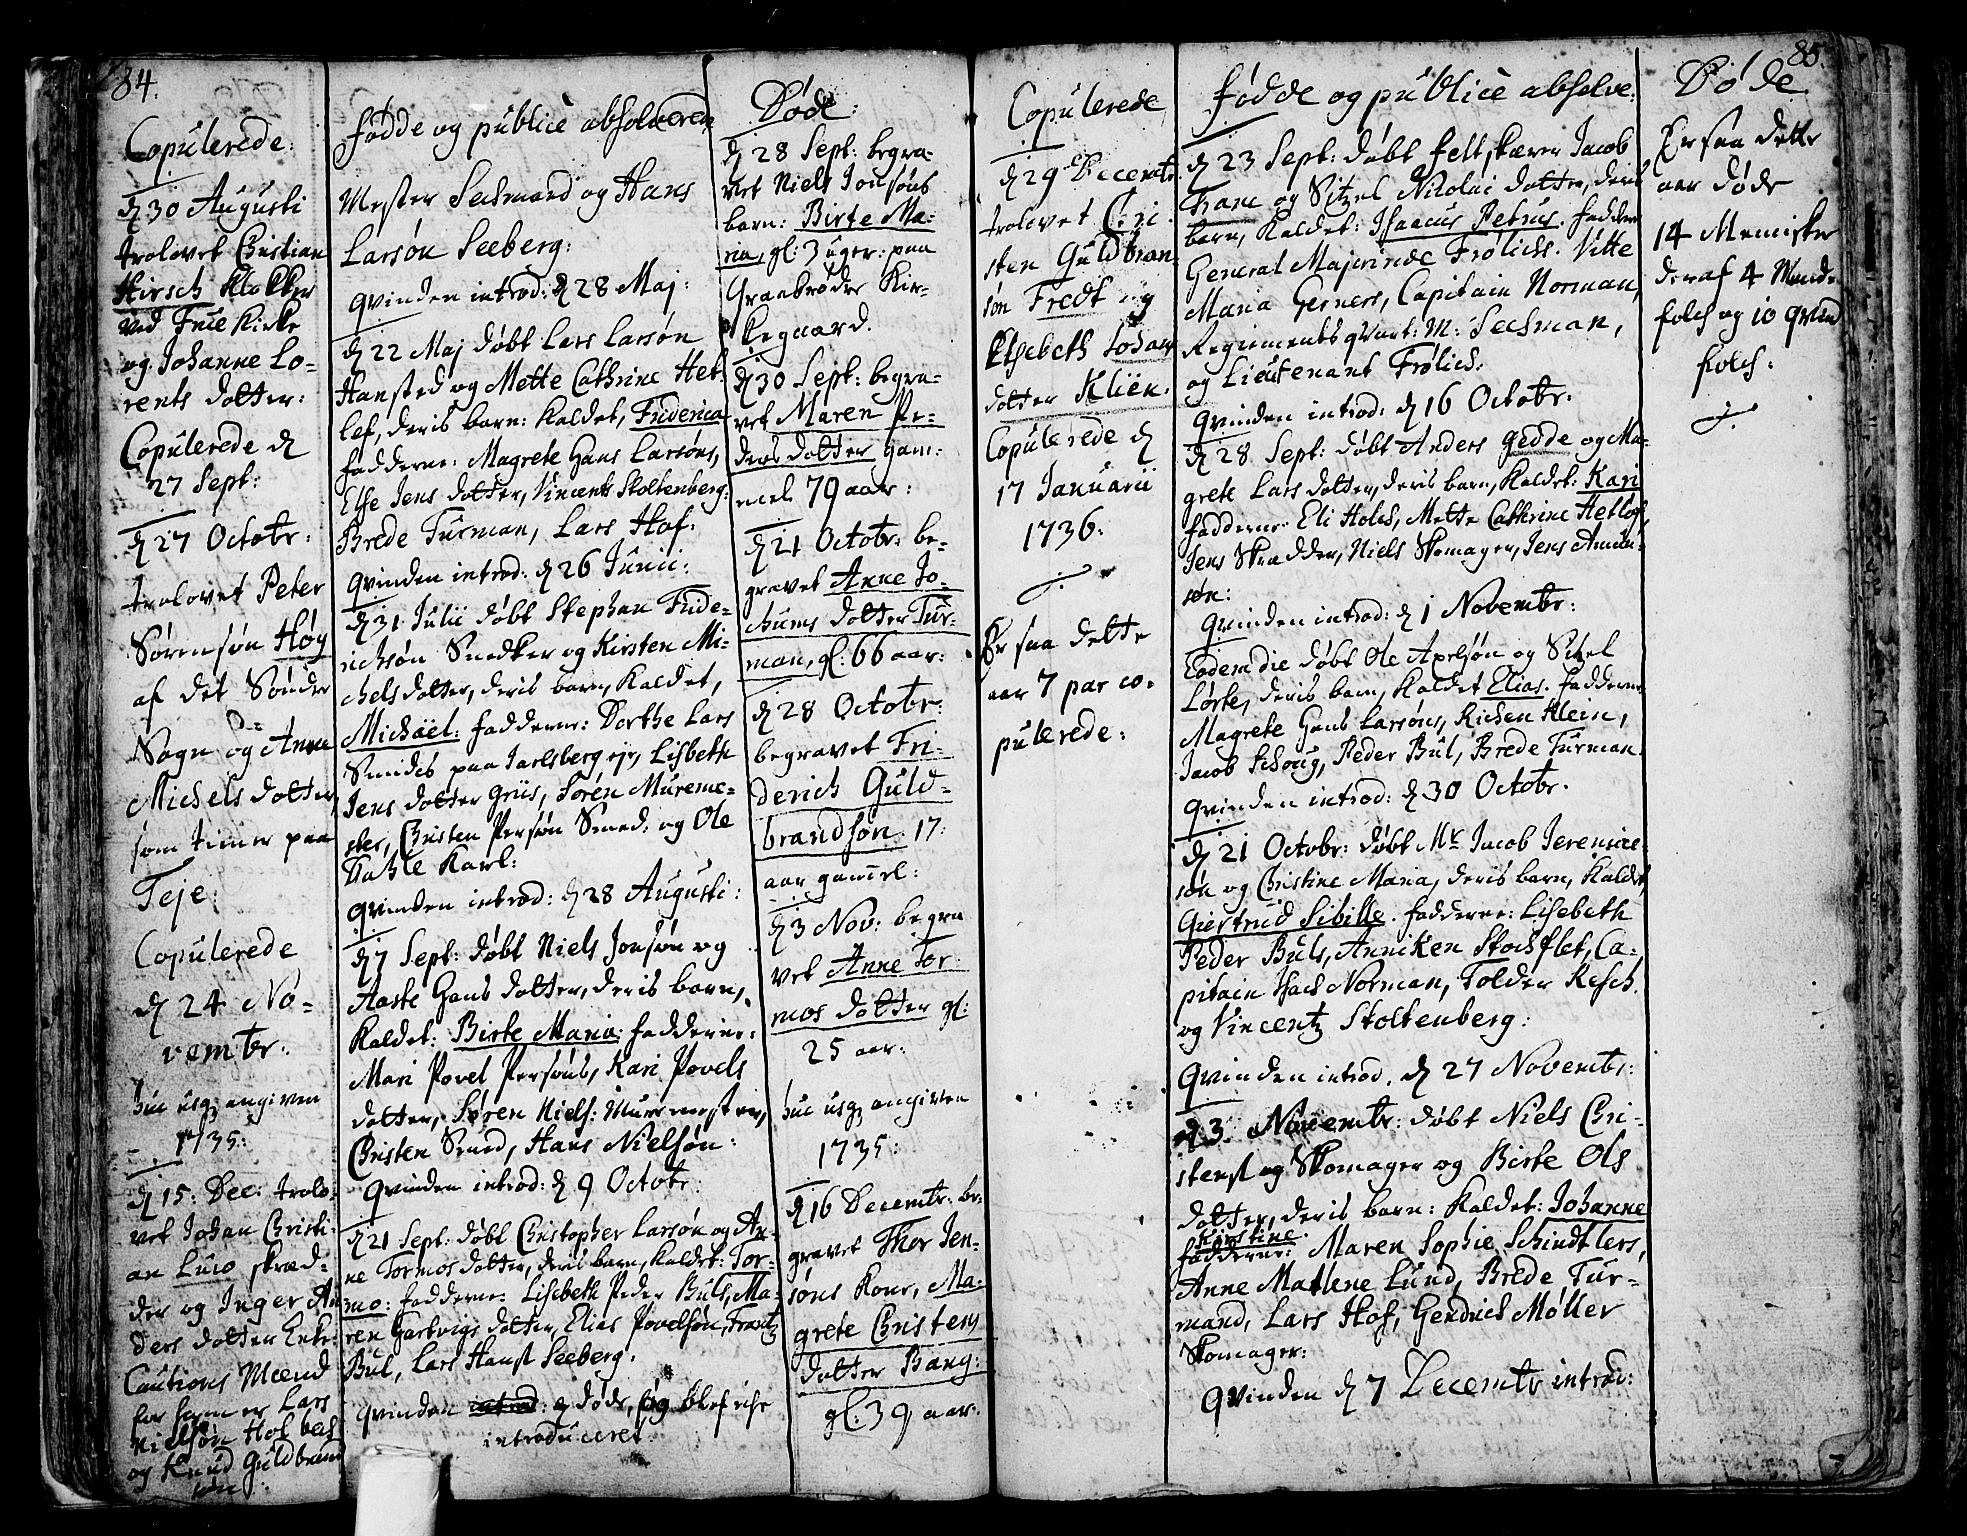 84.
Copulerede:
d 30 Augusti
trolovet Christian
Hirsch Klokker
ved Frue Kirke
og Johanne Lo-
rents dotter:
Copulerede d
27 Sept:
d 27 Octobr:
trolovet Peter
Sörensøn Høy
af det Sönder
Sogn og Anne
Michels dotter
som tiener paa
Teje:
Copulerede
d 24 No-
vembr:
huc usq; angiven
1735:
d 15: Dec: trolo-
vet Johan Christi-
an Luio skræd-
der og Inger An
ders dotter Enke:
Cautions Mænd
for ham er Lars
Nielsøn Hof
og Knud Guldbrand
søn:
fødde og publicè absolverede
Mester Seehmand og Hans
Larsøn Seeberg:
Qvinden introd: d 28 Maj:
d 22 Maj døbt Lars Larsøn
Hansted og Mette Cathrine Het-
lef, deris barn: kaldet, Friderica
fadderne: Magrete Hans Larsøns,
Else Jens dotter, Vincents Stoltenberg:
Brede Turman, Lars Hof:
Qvinden introd: d 26 Junii:
d 31 Julii døbt Stephan Fride-
richsøn Snedker og Kirsten Mi-
chels dotter, deris barn, kaldet,
Michäel: fadderne: Dorthe Lars
Smides paa Jarlsberg ejr, Lisbeth
Jens dotter Griis, Sören Mureme-
ster, Christen Persøn Smed, og Ole
Dahle Karl:
Qvinden introd: d 28 Augusti:
d 7 Sept: døbt Niels Jonsøn og
Aaste Hans dotter, deris barn,
kaldet: Birte Maria: fadderne:
Mari Povel Persøns, Kari Povels
dotter, Søren Niels: Muurmester,
Christen Smed, Hans Nielsøn:
Qvinden introd: d 9 Octobr:
d 21 Sept: døbt Christopher Larsøn og An-
ne Tormos dotter, deris barn, kaldet: Tor-
mo: fadderne: Lisebeth Peder Buls, Ma-
ren Hartvigs dotter, Elias Povelsøn, Frantz
Bul, Lars Hansf Seeberg.
Qvinden introd: døde, og blef icke
introduceret.
Døde:
d 28 Sept: begra-
vet Niels Jonsøns
barn: Birte Ma-
ria, gl: 3 uger: paa
Graabrødre Kir-
kegaard.
d 30 Sept: begra-
vet Maren Pe-
ders dotter gam-
mel 79 aar:
d 21 Octobr: be-
gravet Anne Jo-
chums dotter Tur-
man, gl: 66 aar:
d 28 Octobr:
begravet Fri-
derich Guld-
brandsøn 17:
aar gamel:
d 3 Nov: begra
vet Anne Tor-
mos dotter gl:
25 aar:
huc usq; angiven
1735:
d 16 Decembr: be-
gravet Thor Jen-
søns Kone, Ma-
grete Christens
dotter Bang:
gl: 39 aar:
85.
Copulerede
d 29 Decembr:
trolovet Cri-
sten Guldbran
søn Fredt og
Elsebeth Johan
dotter Kliën.
Copulerede d
17 Januarii
1736:
Er saa dette
aar 7 par co-
pulerede:
Fødde og publicè absolve:
d 23 Sept: døbt feltskærer Jacob
Frane og Sitzel Nicolai dotter, deris
barn, kaldet: Isaacus Petrus. fadderne
General Majorinde Frølichs. Vitte
Maria Gerners, Capitain Norman,
Regiements qvart: M: Seehman,
og Lieutenant Frølich.
Qvinden introd: d 16 Octobr:
d 28 Sept: døbt Anders Gedde og Ma-
grete Lars dotter, deris barn, kaldet: Kari
fadderne: Eli Holes, Mette Cathrine Hetlof,
Jens Skrædder, Niels Skomager, Jens Amun-
søn:
Qvinden introd: d 1 Novembr:
Eodem die døbt Ole Axelsøn og Sitzel
Lørte, deris barn, kaldet Elias. fadderne
Magrete Hans Larsøns, Kichen Klein,
Jacob Schoug, Peder Bul, Brede Turman.
Qvinden introd: d 30 Octobr.
d 21 Octobr: døbt Mr Jacob Jeremiæ-
søn og Christine Maria, deris barn, kaldet
Giertrud Sibille. fadderne: Lisebeth
Peder Buls, Anniken Stochflet, Ca-
pitain Isach Norman, Tolder Resch
og Vincentz Stoltenberg:
Qvinden introd. d 27 Novembr:
d 3 Novembr: døbt Niels Chri-
stensf og Skomager og Birte Ols
dotter, deris barn: kaldet: Johanne
Kirstine.
fadderne: Maren Sophie Schindtlers,
Anne Matlene Lund, Brede Tur-
mand, Lars Hof, Hendrich Møller
Skomager:
Qvinden d 7 Decembr introd:
Døde
Er saa dette
aar døde
14 Menisker
deraf 4 Mand-
folch og 10 qvind
folch: